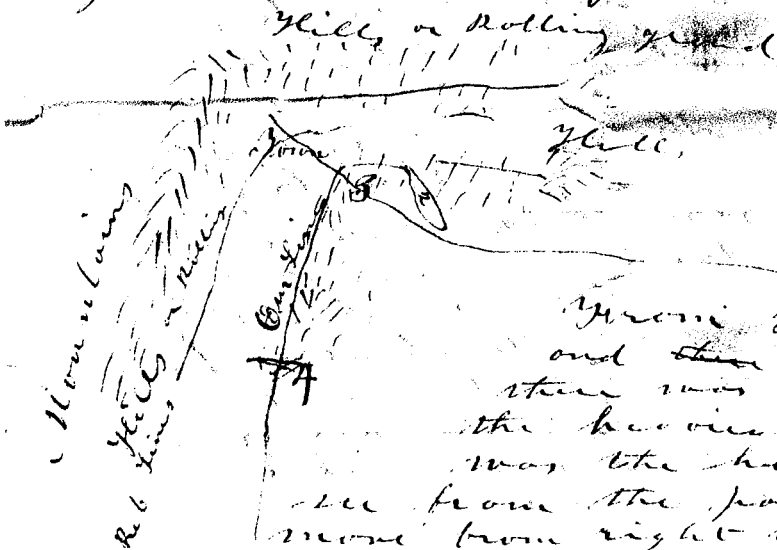 Hills or Rolling ground
Town
Hill,
3
2
Our Line
Mountains
Hills or Rolling
Reb Lines
4
From
and there
there was
the heavies
was the ha
see from the po
move from right